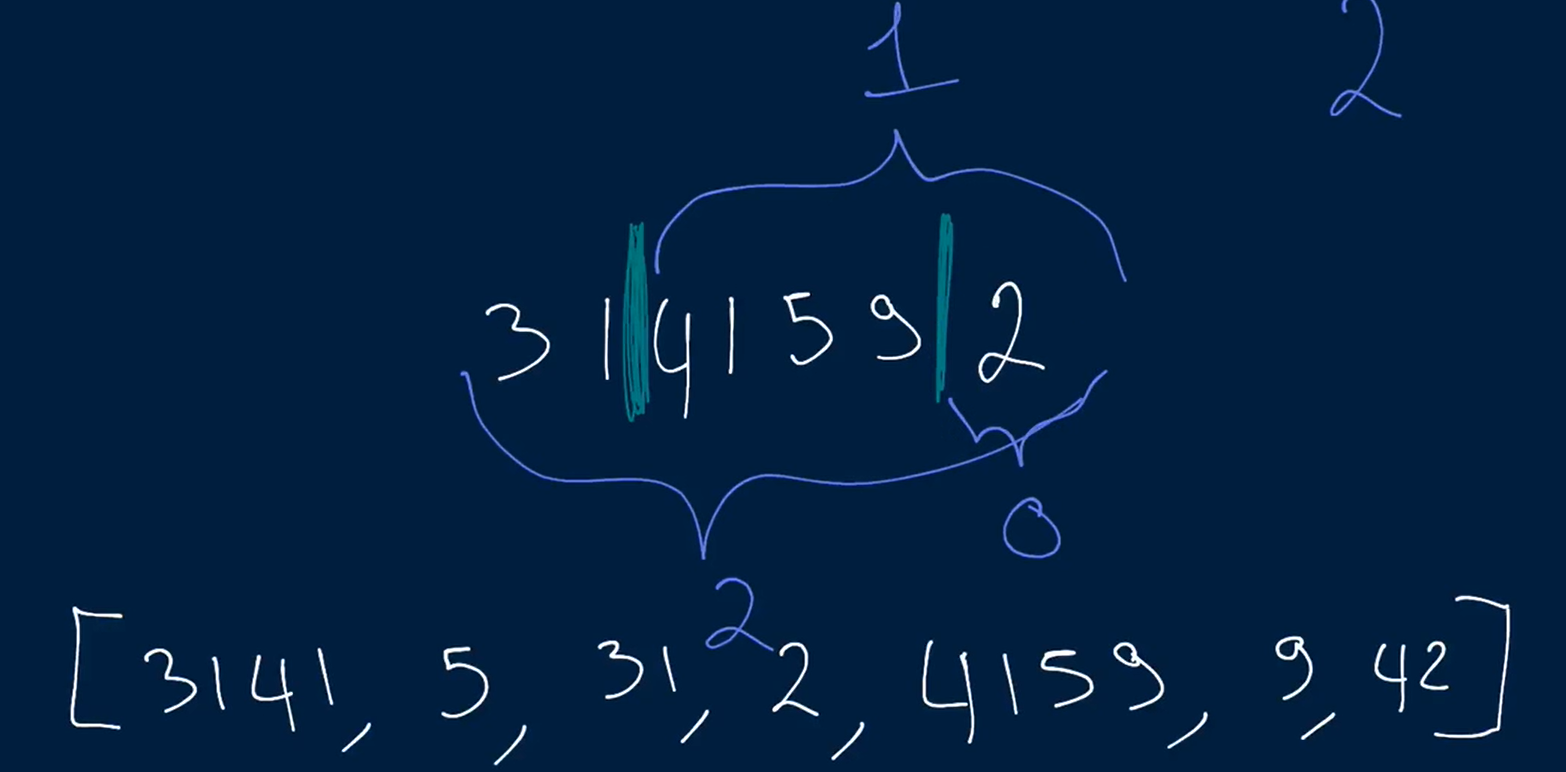 1 2
3 1 4 1 5 9 2
0
2
[3141, 5, 31, 2, 4159, 9, 42]